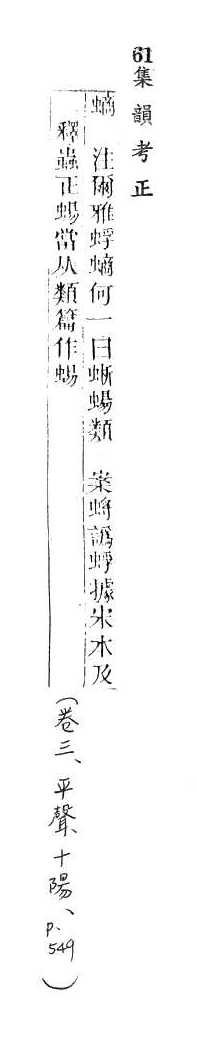 61集韻考正
螪 注爾雅蜉螪何一曰蜥蝪類 案蛶譌蜉據宋本及
釋蟲正蝪當从類篇作蜴
(卷三、平聲、十陽、p.549)